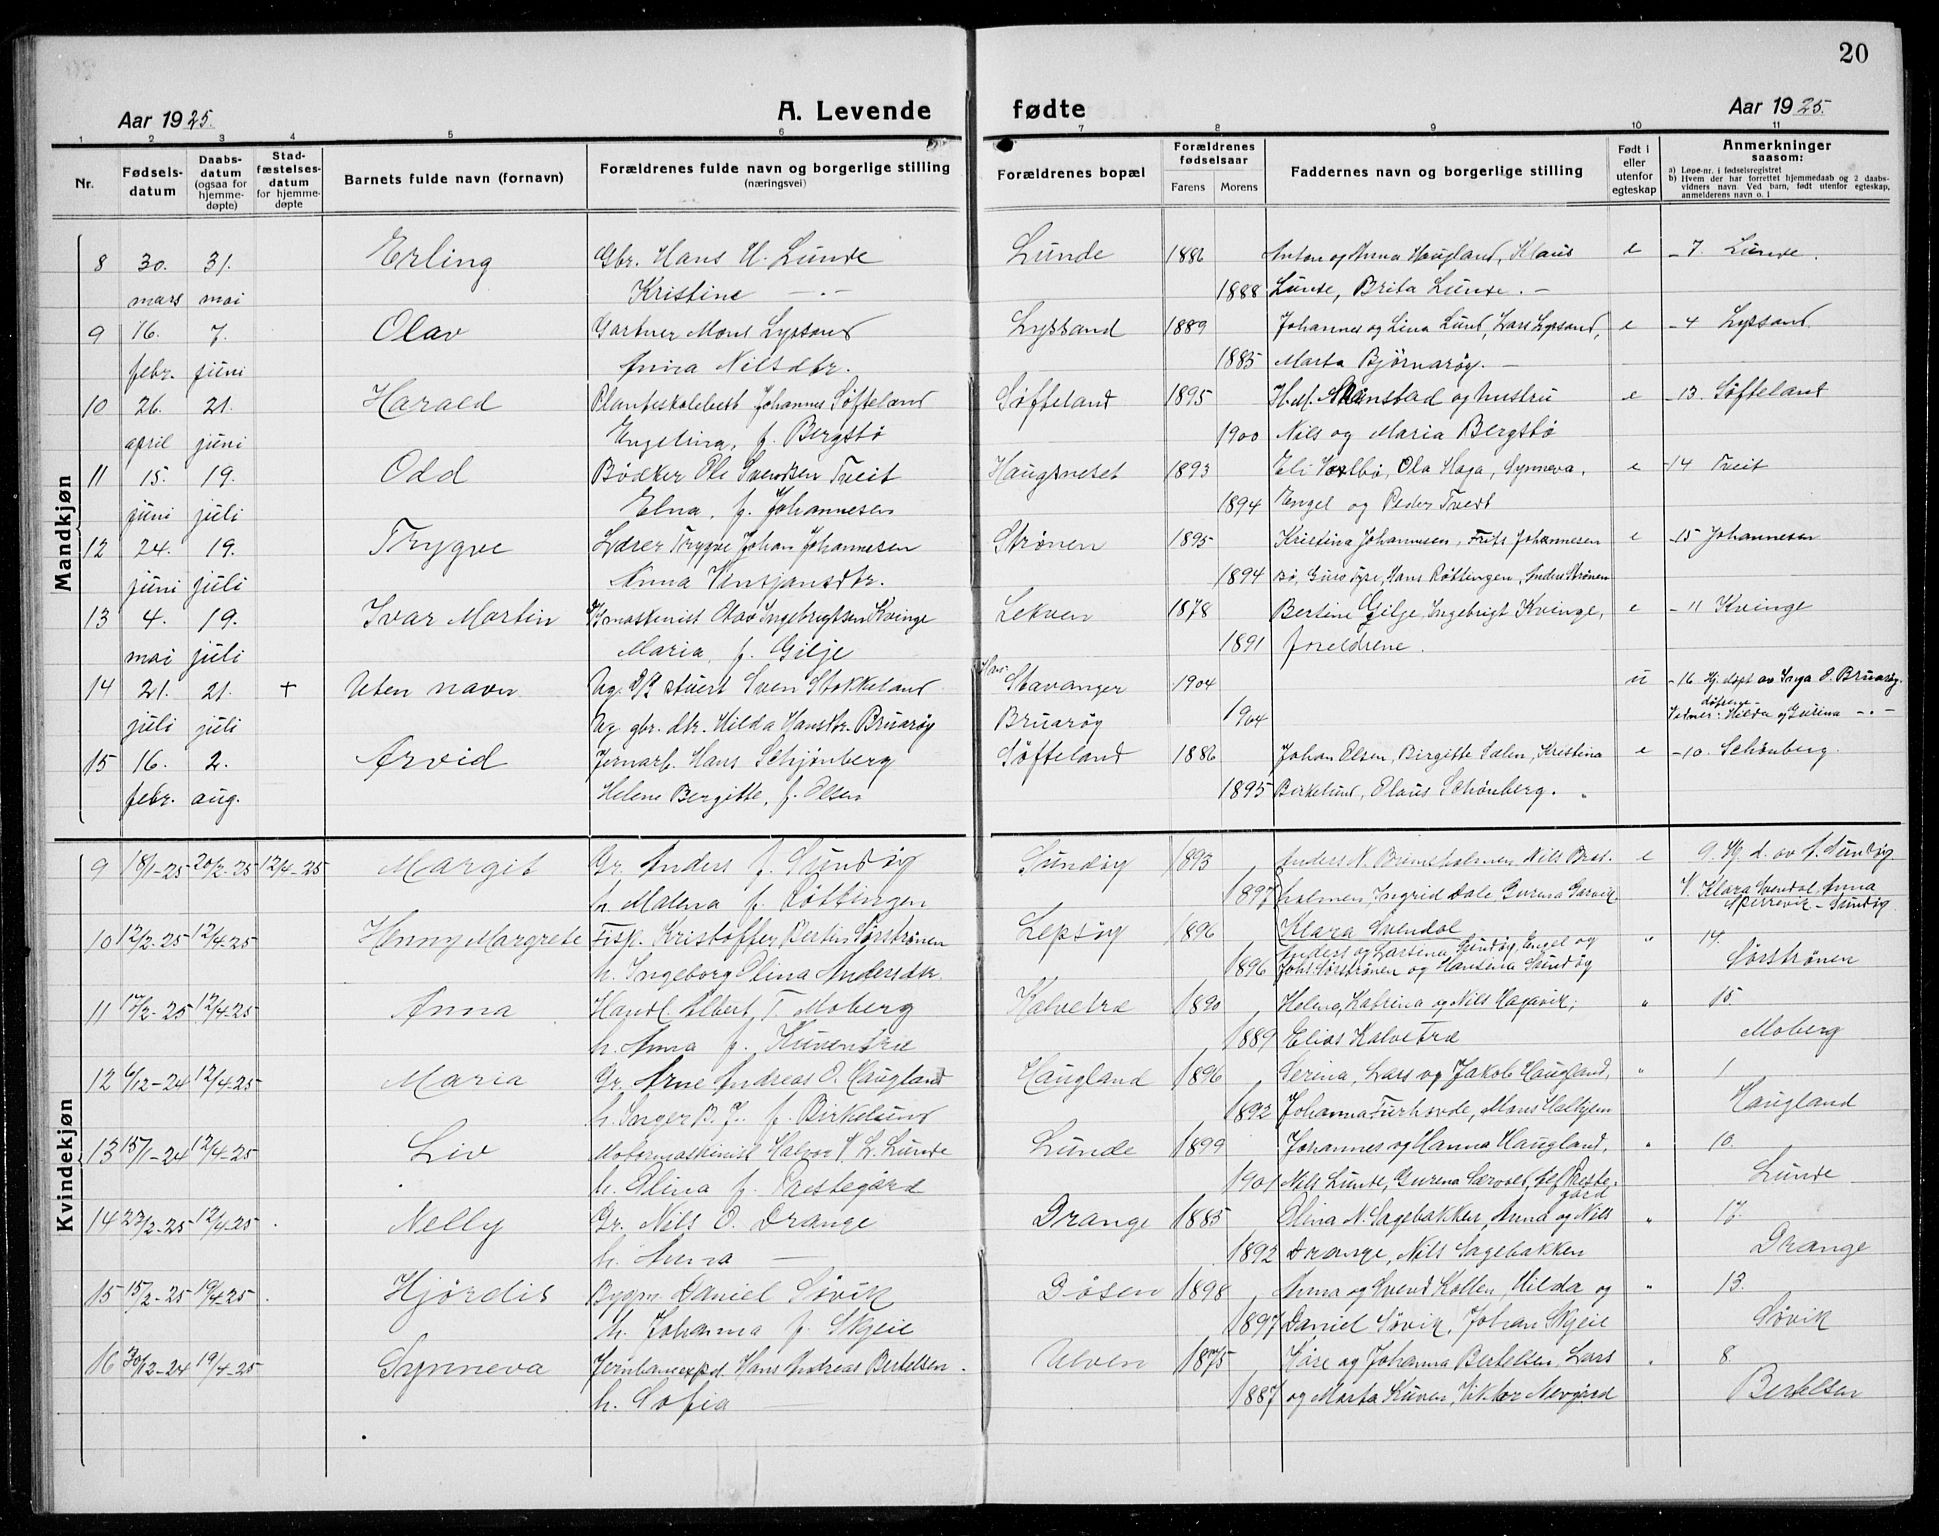 20
Aar 1925.
A. Levende
fødte
Aar 1925.
1 2 3 4 5 6 7 8 9 10 11
Nr.
Fødsels-
datum
Daabs-
datum
(ogsaa for
hjemme-
døpte)
Stad-
fæstelses-
datum
for hjemme-
døpte
Barnets fulde navn (fornavn)
Forældrenes fulde navn og borgerlige stilling
(næringsvei)
Forældrenes bopæl
Forældrenes
fødselsaar
Farens Morens
Faddernes navn og borgerlige stilling
Født i
eller
utenfor
egteskap
Anmerkninger
saasom:
a) Løpe-nr. i fødselsregistret
b) Hvem der har forrettet hjemmedaab og 2 daabs-
vidners navn. Ved barn, født utenfor egteskap,
anmelderens navn o. l
Mandkjøn
8 30. 31. Erling Gbr. Hans H. Lunde Lunde 1886 Anton og Anna Haugland, Klaus e - 7. Lunde.
mars mai Kristine — 1888 Lunde, Brita Lunde. -
9 16. 7. Olav Gartner Mons Lyssand Lyssand 1889 Johannes og Lina Lund, Lars Lyssand, e - 4 Lyssand.
febr. juni Anna Nilsdtr. 1885 Marta Bjørnarøy. -
10 26. 21. Harald Planteskolebest Johannes Søfteland Søfteland 1895 og hustru e - 13. Søfteland
april juni Engelina, f. Bergstø 1900 Nils og Maria Bergstø
11 15. 19. Odd Bødker Ole Svendsen Tveit Haugsneset 1893 Ola Haga, Synneva, e - 14 Tveit
juni juli Elna, f. Johannesen 1894 Engel og Peder Tvedt
12 24. 19. Trygve Lærer Trygve Johan Johannesen Strønen 1895 Kristina Johannesen, Frits Johannesen e - 15 Johannesen
juni juli Anna Vinsjansdtr. 1894 Bø, Guro Øyre, Hans Røttingen, Andre Strønen
13 4. 19. Ivar Martin Olav Ingebrigtsen Kvinge Lekven 1878 Bertine Gilje, Ingebrigt Kvinge, e - 11 Kvinge
mai juli Maria, f. Gilje 1891 foreldrene.
14 21. 21. + Uten navn Ug. D/S stuert Sven Stokkeland Stavanger 1904 u - 16 Hj. døpt av Inga O. Bruarøy.
juli juli Ug. gbr. dtr. Hilda Hansdtr. Bruarøy Bruarøy 1904 Vidner: Hilda og Gurina - . -
15 16. 2. Arvid Jernarb. Hans Schjønberg Søfteland 1886 Johan Olsen, Birgitte Salen, Kristina e - 10. Schønberg.
febr. aug. Helene Bergitte, f. Olsen 1895 Birkelund, Olaus Schønberg.
Kvindekjøn
9 18/1-25 20/2-25 12/4-25 Margit Gr. Anders f. Sundøy Sundøy 1893 Anders N. Brimsholmen, Nils Brat- e 9. Hj. d. av A. Sundøy
h. Malena f. Røttingen 1897 holmen, Ingrid Dale, Gurina Garvik V. Klara Svendal, Anna
Sperrevik - Sundøy.
10 12/2-25 12/4-25 Henny Margrete Fisk. Kristoffer Bertin Sørstrønen Lepsøy 1896 Klara Svendal " 14.
h. Ingeborg Olina Andersdtr 1896 Anders og Larsina Sundøy, Engel og
Johs Sørstrønen og Hansina Sundøy Sørstrønen
11 17/2-25 12/4-25 Anna Handl. Albert T. Moberg Kalvetræ 1890 Helena, Katrina og Nils Hagavik, " 15.
h. Anna f. Kuventræ 1889 Elias Kalvetræ Moberg
12 6/12-24 12/4-25 Maria Gr. Arne Andreas O. Haugland Haugland 1896 Serina, Lars og Jakob Haugland, " 1
h. Inger B. J. f. Birkelund 1892 Johanna Turhovde, Mons Halhjem Haugland
13 15/1-24 12/4-25 Liv Motormaskinist Halvor V. L. Lunde Lunde 1899 Johannes og Hanna Haugland, " 10.
h. Olina f. Prestegård 1901 Nils Lunde, Gurena Særvoll, Alf Preste-
gård Lunde
14 23/2-25 12/4-25 Nelly Gr. Nils O. Drange Drange 1885 Olina N. Sagebakken, Anna og Nils " 17.
h. Anna — 1892 Drange, Nils Sagebakken Drange
15 15/2-25 19/4-25 Hjørdis Bygm. Daniel Søvik Døsen 1898 Anna og Svend Kollen, Hilda og " 13.
h. Johanna f. Skjeie 1897 Daniel Søvik, Johan Skjeie Søvik
16 30/12-24 19/4-25 Synneva Jernbaneexpd. Hans Andreas Bertelsen. Ulven 1875 Kåre og Johanna Bertelsen, Lars " 8.
h. Sofia — 1887 og Marta Kuven, Viktor Nevgård Bertelsen